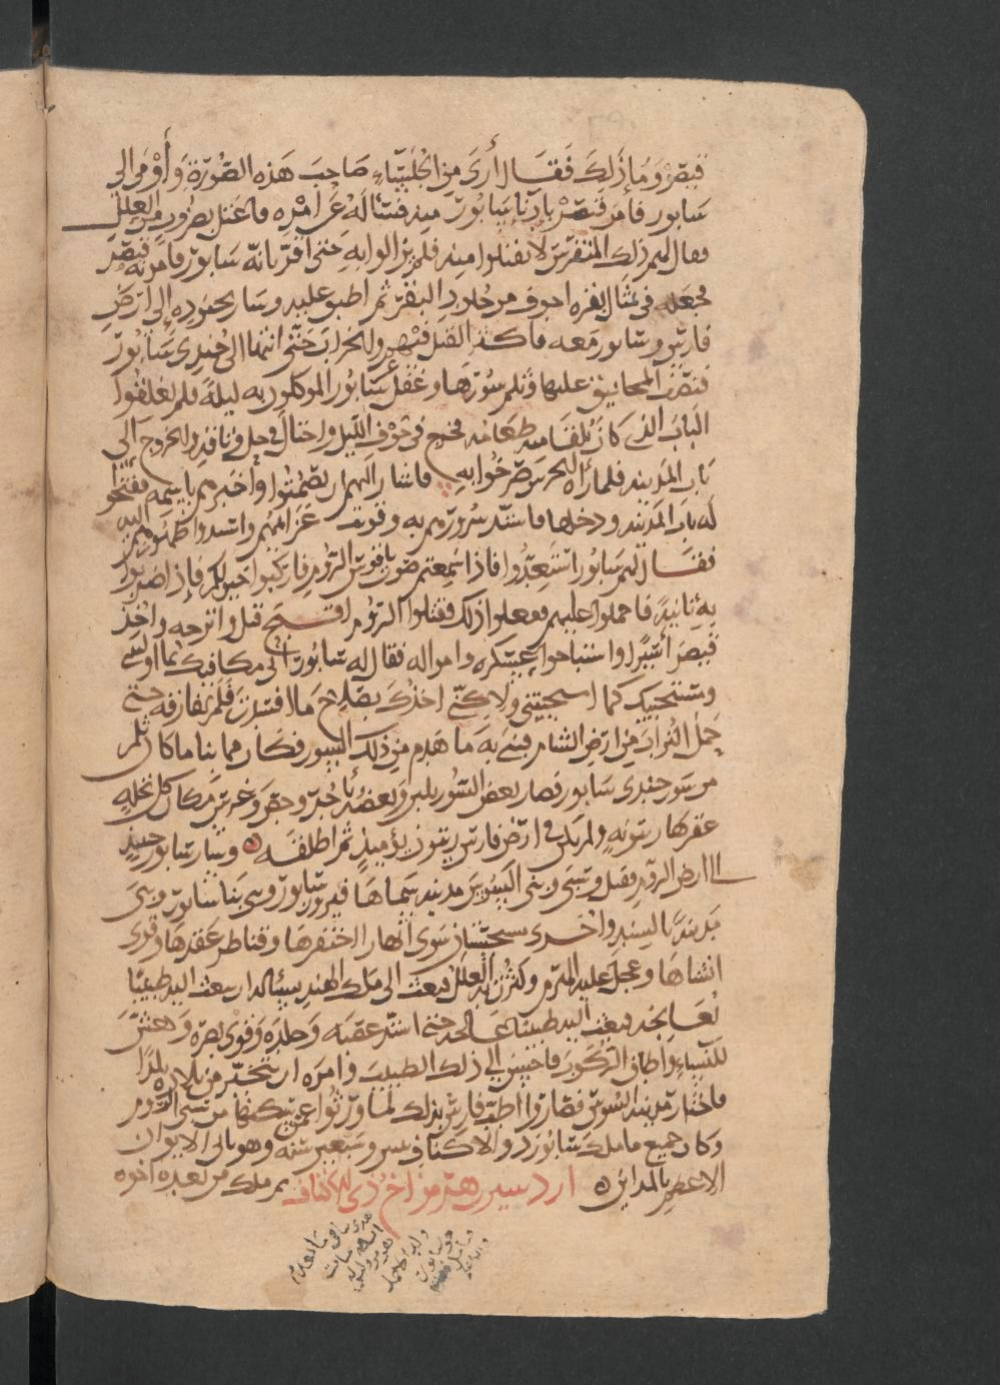 قيصر وما ذلك فقال أرى من الجلساء صاحب هذه الصورة وأومى الى
سابور فامر قيصر بادنا سابور منه فسأله عن امره فاعتل بضروب من العلل
فقال لهم ذلك المتفرس لا تقبلوا منه فلم يزالوا به حتى اقر بانه سابور فامر به قيصر
فجعله في تمثال بقرة اجوف من جلود البقر ثم اطبق عليه وسار بجنوده إلى ارض
فارس وسابور معه فاكثر القتل فيهم والخراب حتى انتها الى جندي سابور
فنصب المجانيق عليها وثلم سورها وغفل سابور الموكلون به ليلة فلم يغلقوا
الباب الذى كان يلقا منه طعامه فخرج في جوف الليل واحتال في حل وثاقه والخروج الى
باب المدينة فلما رآه الحرس صرخوا به فاشار اليهم ان يصمتوا وأخبرهم باسمه ففتحوا
له باب المدينة ودخلها فاشتد سرورهم به وقويت عزائمهم واشتدوا
فقال لهم سابور استعدوا فاذا سمعتم صوت ناقوس الروم فاركبوا خيولكم فإذا ضربوا
به ثانية فاحملوا عليهم ففعلوا ذلك فقتلوا الروم قتل واترحه واخذ
قيصر أسيرا واستباحوا عسكره وامواله فقال له سابور انى مكافيك بما اوليتنى
ومستحييك كما استحييتني ولاكني اخذك بصلاح ما افسدت فلم يفارقه حتى
حمل التراب من ارض الشام فبنى به ما هدم من ذلك السور فكان مما بنا ما كان ثلم
من سور جندى سابور فصار بعض السور بلبن وبعضه بآجر وجص وغرس مكان كل نخلة
عقرها زيتونة ولم يكن في ارض فارس زيتون يوميذ ثم اطلقه وسار سابور حينيذ
الا ارض الروم فقتل وسبى وبنى السوس مدينة سماها فيروز سابور وسى بنا سابور وبنى
مدينة بالسند واخرى بسجستان سوى أنهار احتفرها وقناطر عقدها وقرى
انشاها وعجل عليه الهرم وكثرت به العلل فبعث الى ملك الهند يسئاله ان يبعث اليه طبيبا
يعالجه فبعث اليه طبيبا عالجه حتى اشتد عصبه وجلده وقوى بصره وهش
للنساء واطاق الركوب فاحسن الى ذلك الطبيب وامره ان يتخير من بلاده بلدا
فاختار مدينة السوس فصاروا اطب فارس بذلك لما ورثوا عمن سكنها من سبى الروم
وكان جميع ما ملك سابور ذو الاكتاف اثنين وسبعين سنة وهو باني الايوان
الاعظم بالمدائن اردسير بن هرمز اخ ذى الاكتاف ثم ملك من بعده اخوه